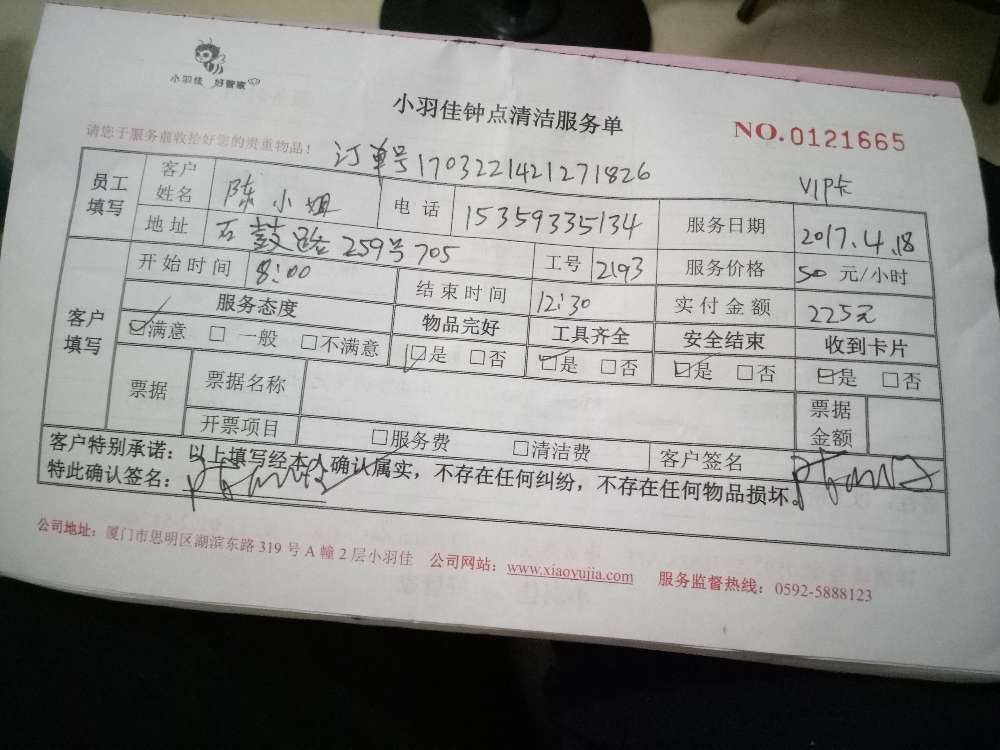 小羽佳 好管家
小羽佳钟点清洁服务单
NO.0121665
请您于服务前收拾好您的贵重物品!
订单号1703221421271826
VIP卡
员工填写 客户姓名 陈小姐 电话 15359335134 服务日期 2017.4.18
地址 石鼓路259号705 工号 2193 服务价格 50 元/小时
客户填写 开始时间 8:00 结束时间 12:30 实付金额 225元
服务态度 物品完好 工具齐全 安全结束 收到卡片
☑满意 □一般 □不满意 ☑是 □否 ☑是 □否 ☑是 □否 ☑是 □否
票据 票据名称 票据金额
开票项目 □服务费 □清洁费 客户签名
客户特别承诺:以上填写经本人确认属实,不存在任何纠纷,不存在任何物品损坏。
特此确认签名:
公司地址:厦门市思明区湖滨东路 319 号 A 幢 2 层小羽佳 公司网站:www.xiaoyujia.com 服务监督热线:0592-5888123